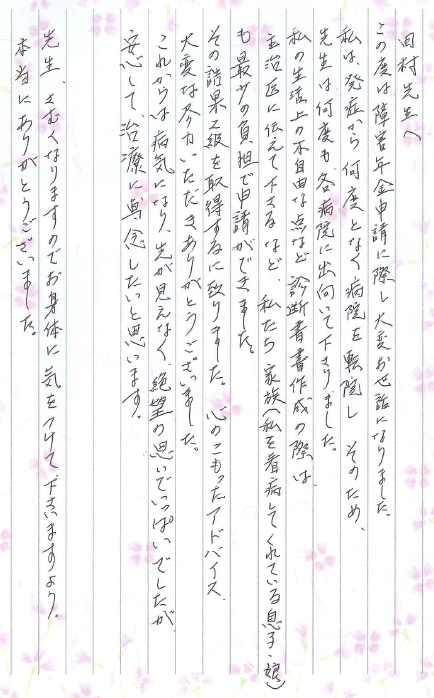 田村先生へ
この度は障害年金申請に際し大変お世話になりました。
私は、発症から何度となく病院を転院し そのため、
先生は何度も各病院に出向いて下さりました。
私の生活上の不自由な点など 診断書書作成の際は、
主治医に伝えて下さるなど、私たち家族(私を看病してくれている息子・娘)
も最少の負担で申請ができました。
その結果2級を取得するに致りました。心のこもったアドバイス、
大変な尽力いただきありがとうございました。
これからは 病気になり、先が見えなく、絶望の思いでいっぱいでしたが、
安心して、治療に専念したいと思います。
先生、さむくなりますのでお身体に気をつけて下さいますよう。
本当にありがとうございました。